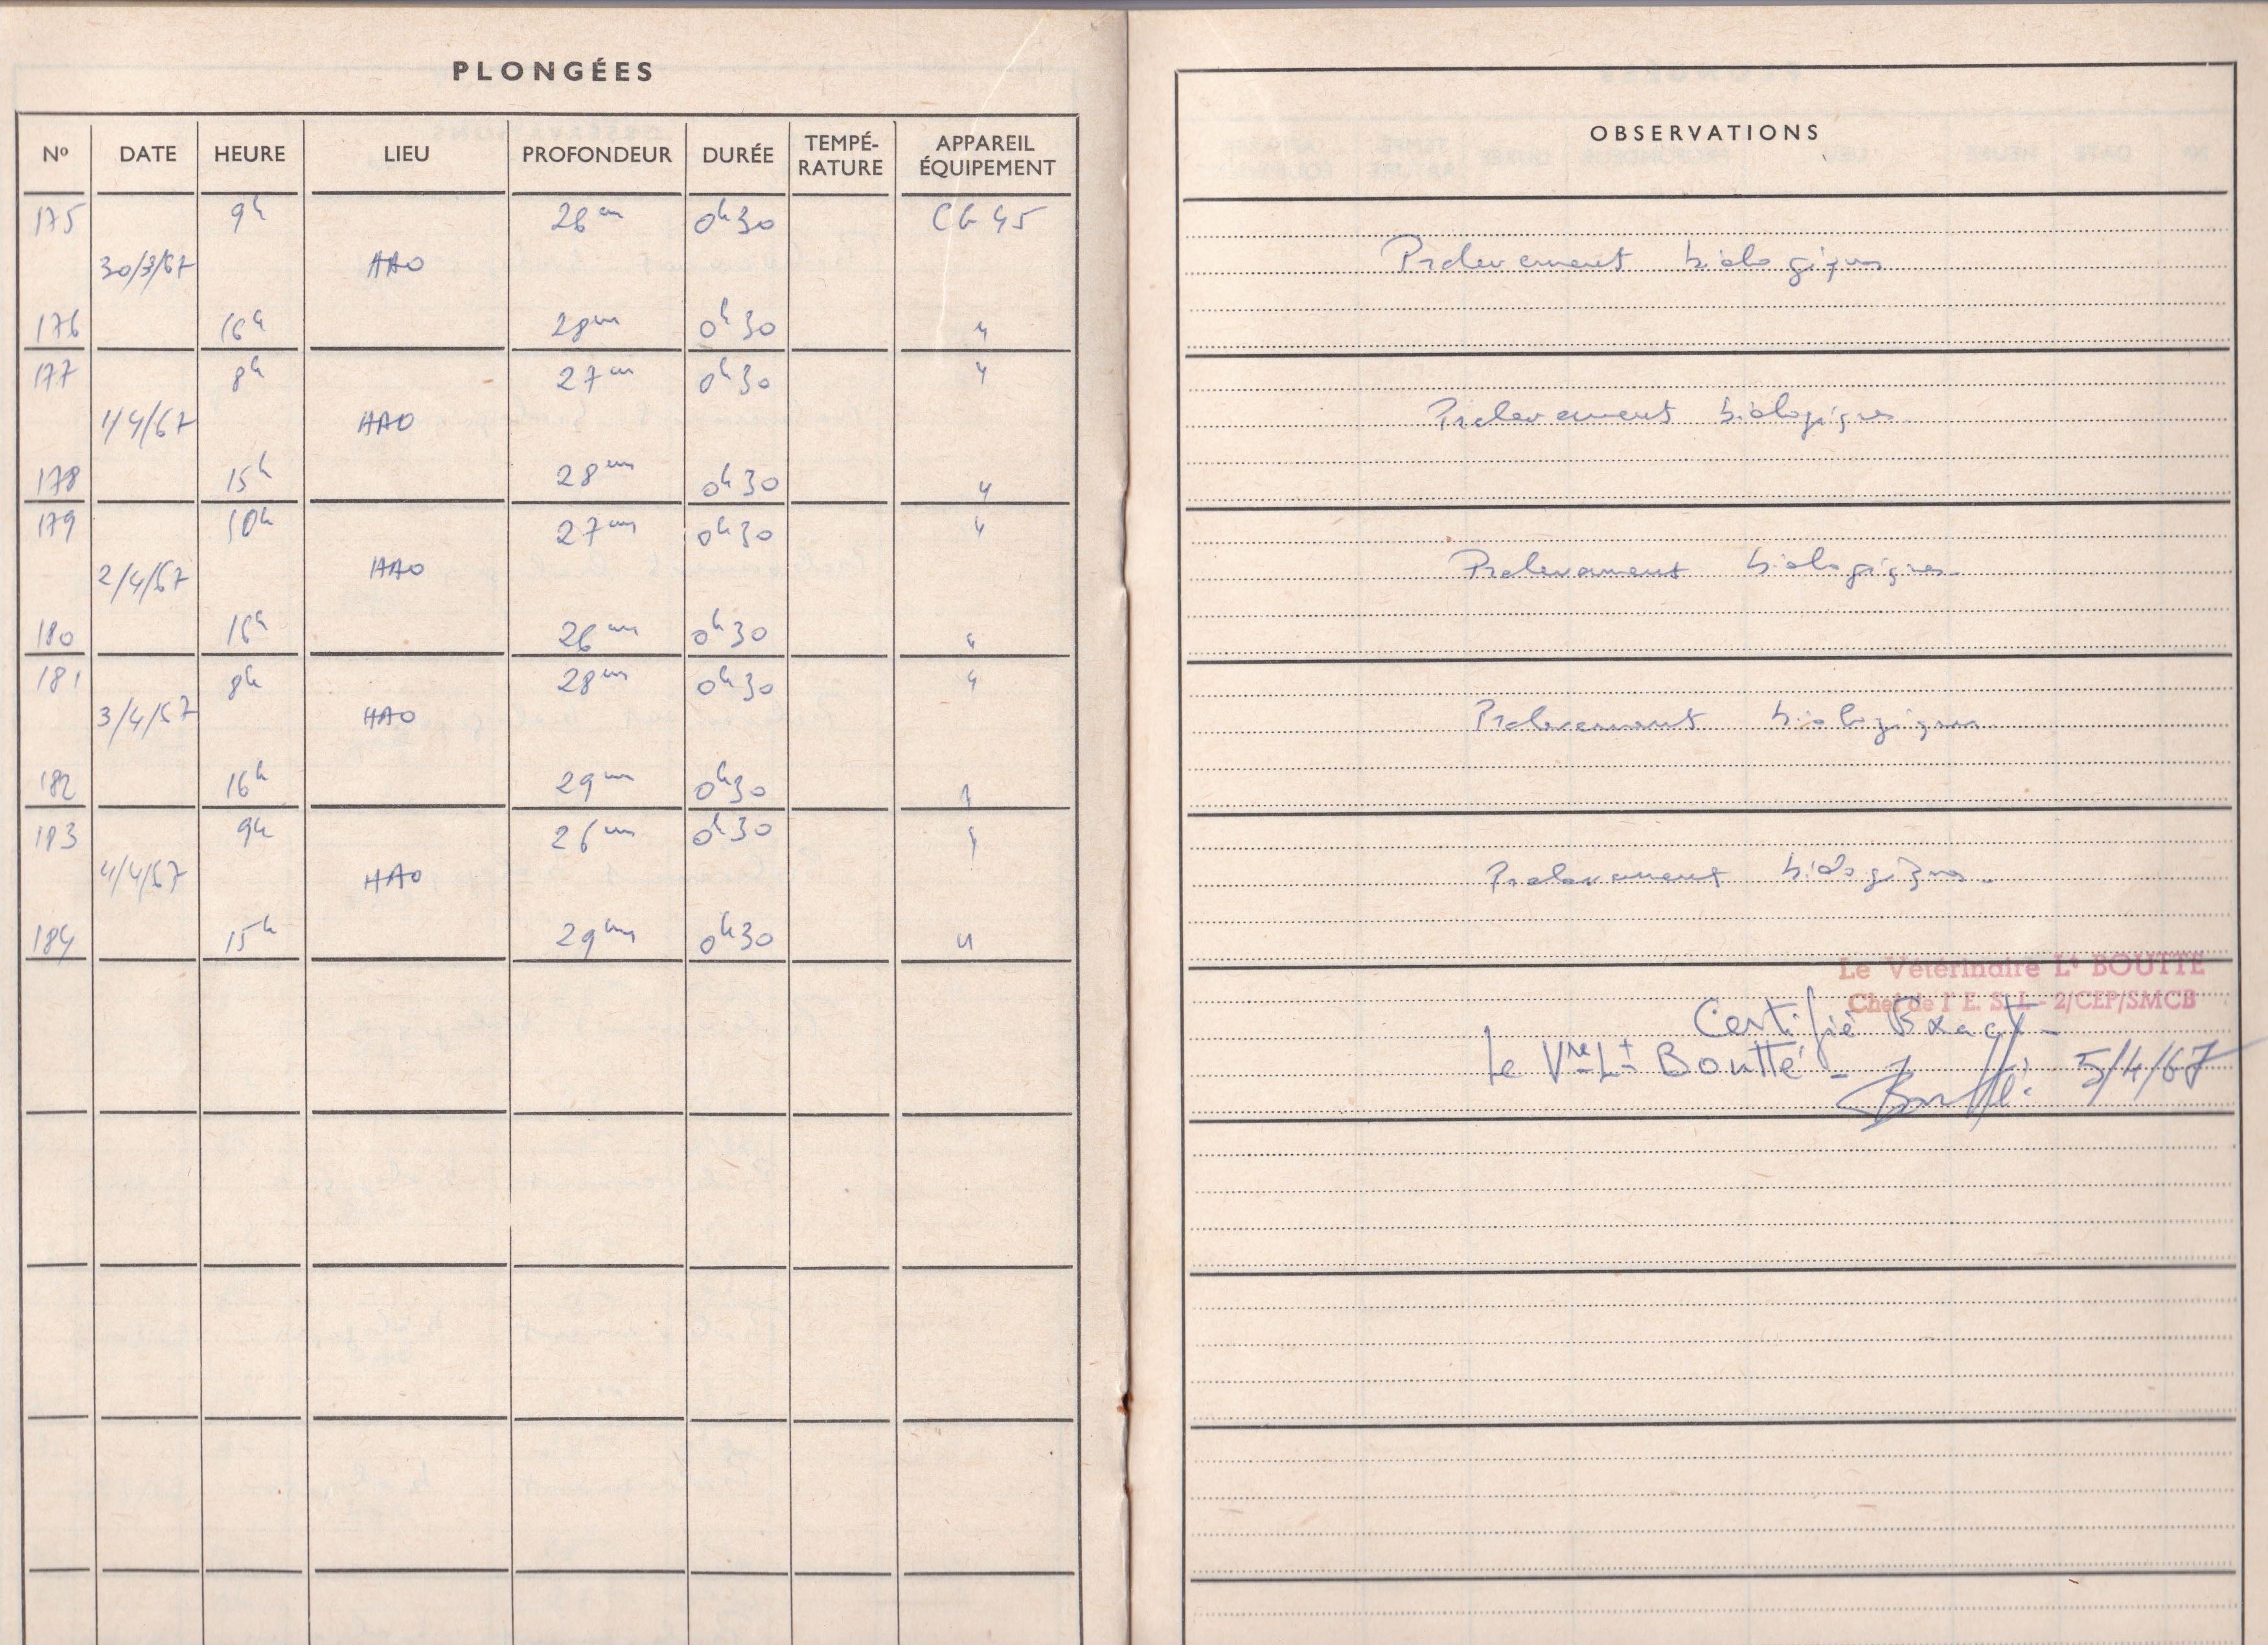 PLONGÉES
Nº DATE HEURE LIEU PROFONDEUR DURÉE TEMPÉ-RATURE APPAREIL ÉQUIPEMENT
OBSERVATIONS
175 9h 26m 0h30 CG 45
30/3/67 HAO Prelevement biologiques
176 16h 28m 0h30 "
177 8h 27m 0h30 "
1/4/67 HAO Prelevements biologiques
178 15h 28m 0h30 "
179 10h 27m 0h30 "
2/4/67 HAO Prelevement biologiques
180 16h 26m 0h30 "
181 8h 28m 0h30 "
3/4/67 HAO Prelevement biologiques
182 16h 29m 0h30 "
183 9h 26m 0h30 "
4/4/67 HAO Prelevement biologiques.
184 15h 29m 0h30 "
Le Vétérinaire Lt BOUTTE
Chef de l'E. S. L - 2/CEP/SMCB
Certifié Exact -
Le Vre Lt Boutté - 5/4/67
Boutté